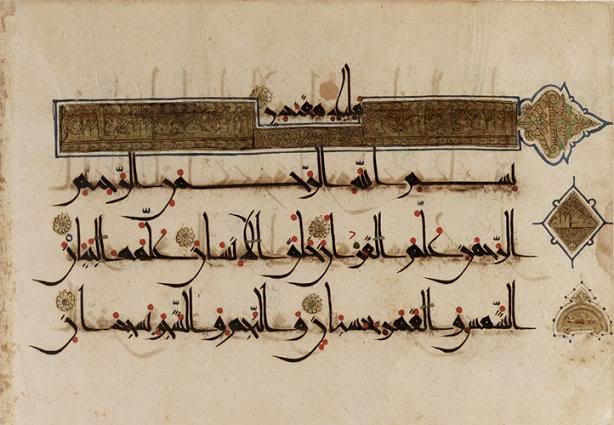 مليك مقتدر
بسم الله الرحمن الرحيم
الرحمن علم القرآن خلق الإنسان علمه البيان
الشمس والقمر بحسبان والنجم والشجر يسجدان